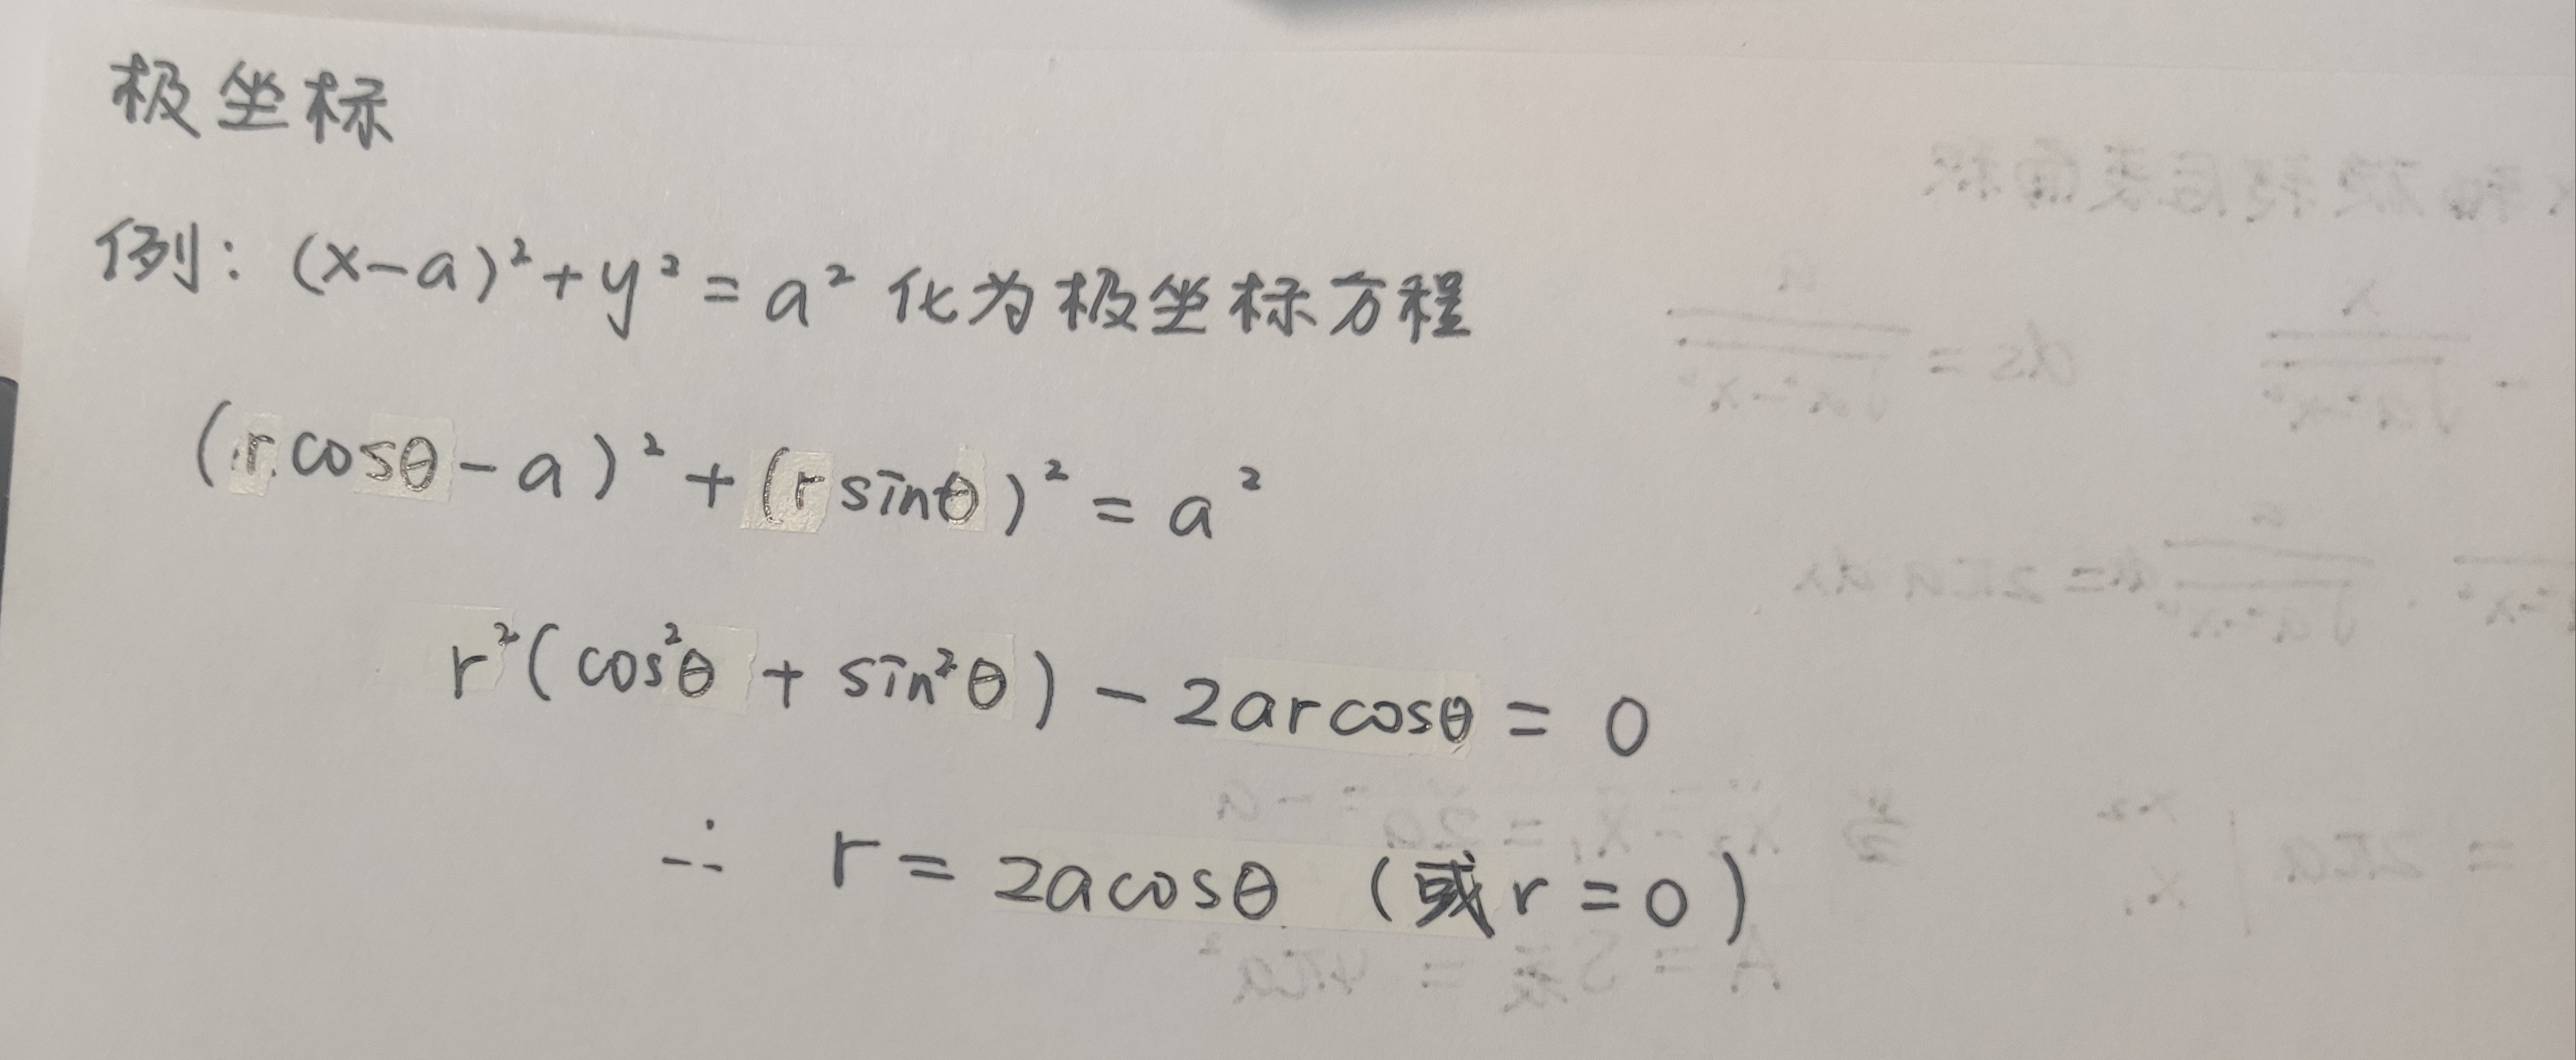 极坐标
例：(x-a)²+y²=a² 化为极坐标方程
(rcosθ-a)²+(rsinθ)²=a²
r²(cos²θ+sin²θ)-2arcosθ=0
∴ r=2acosθ (或r=0)